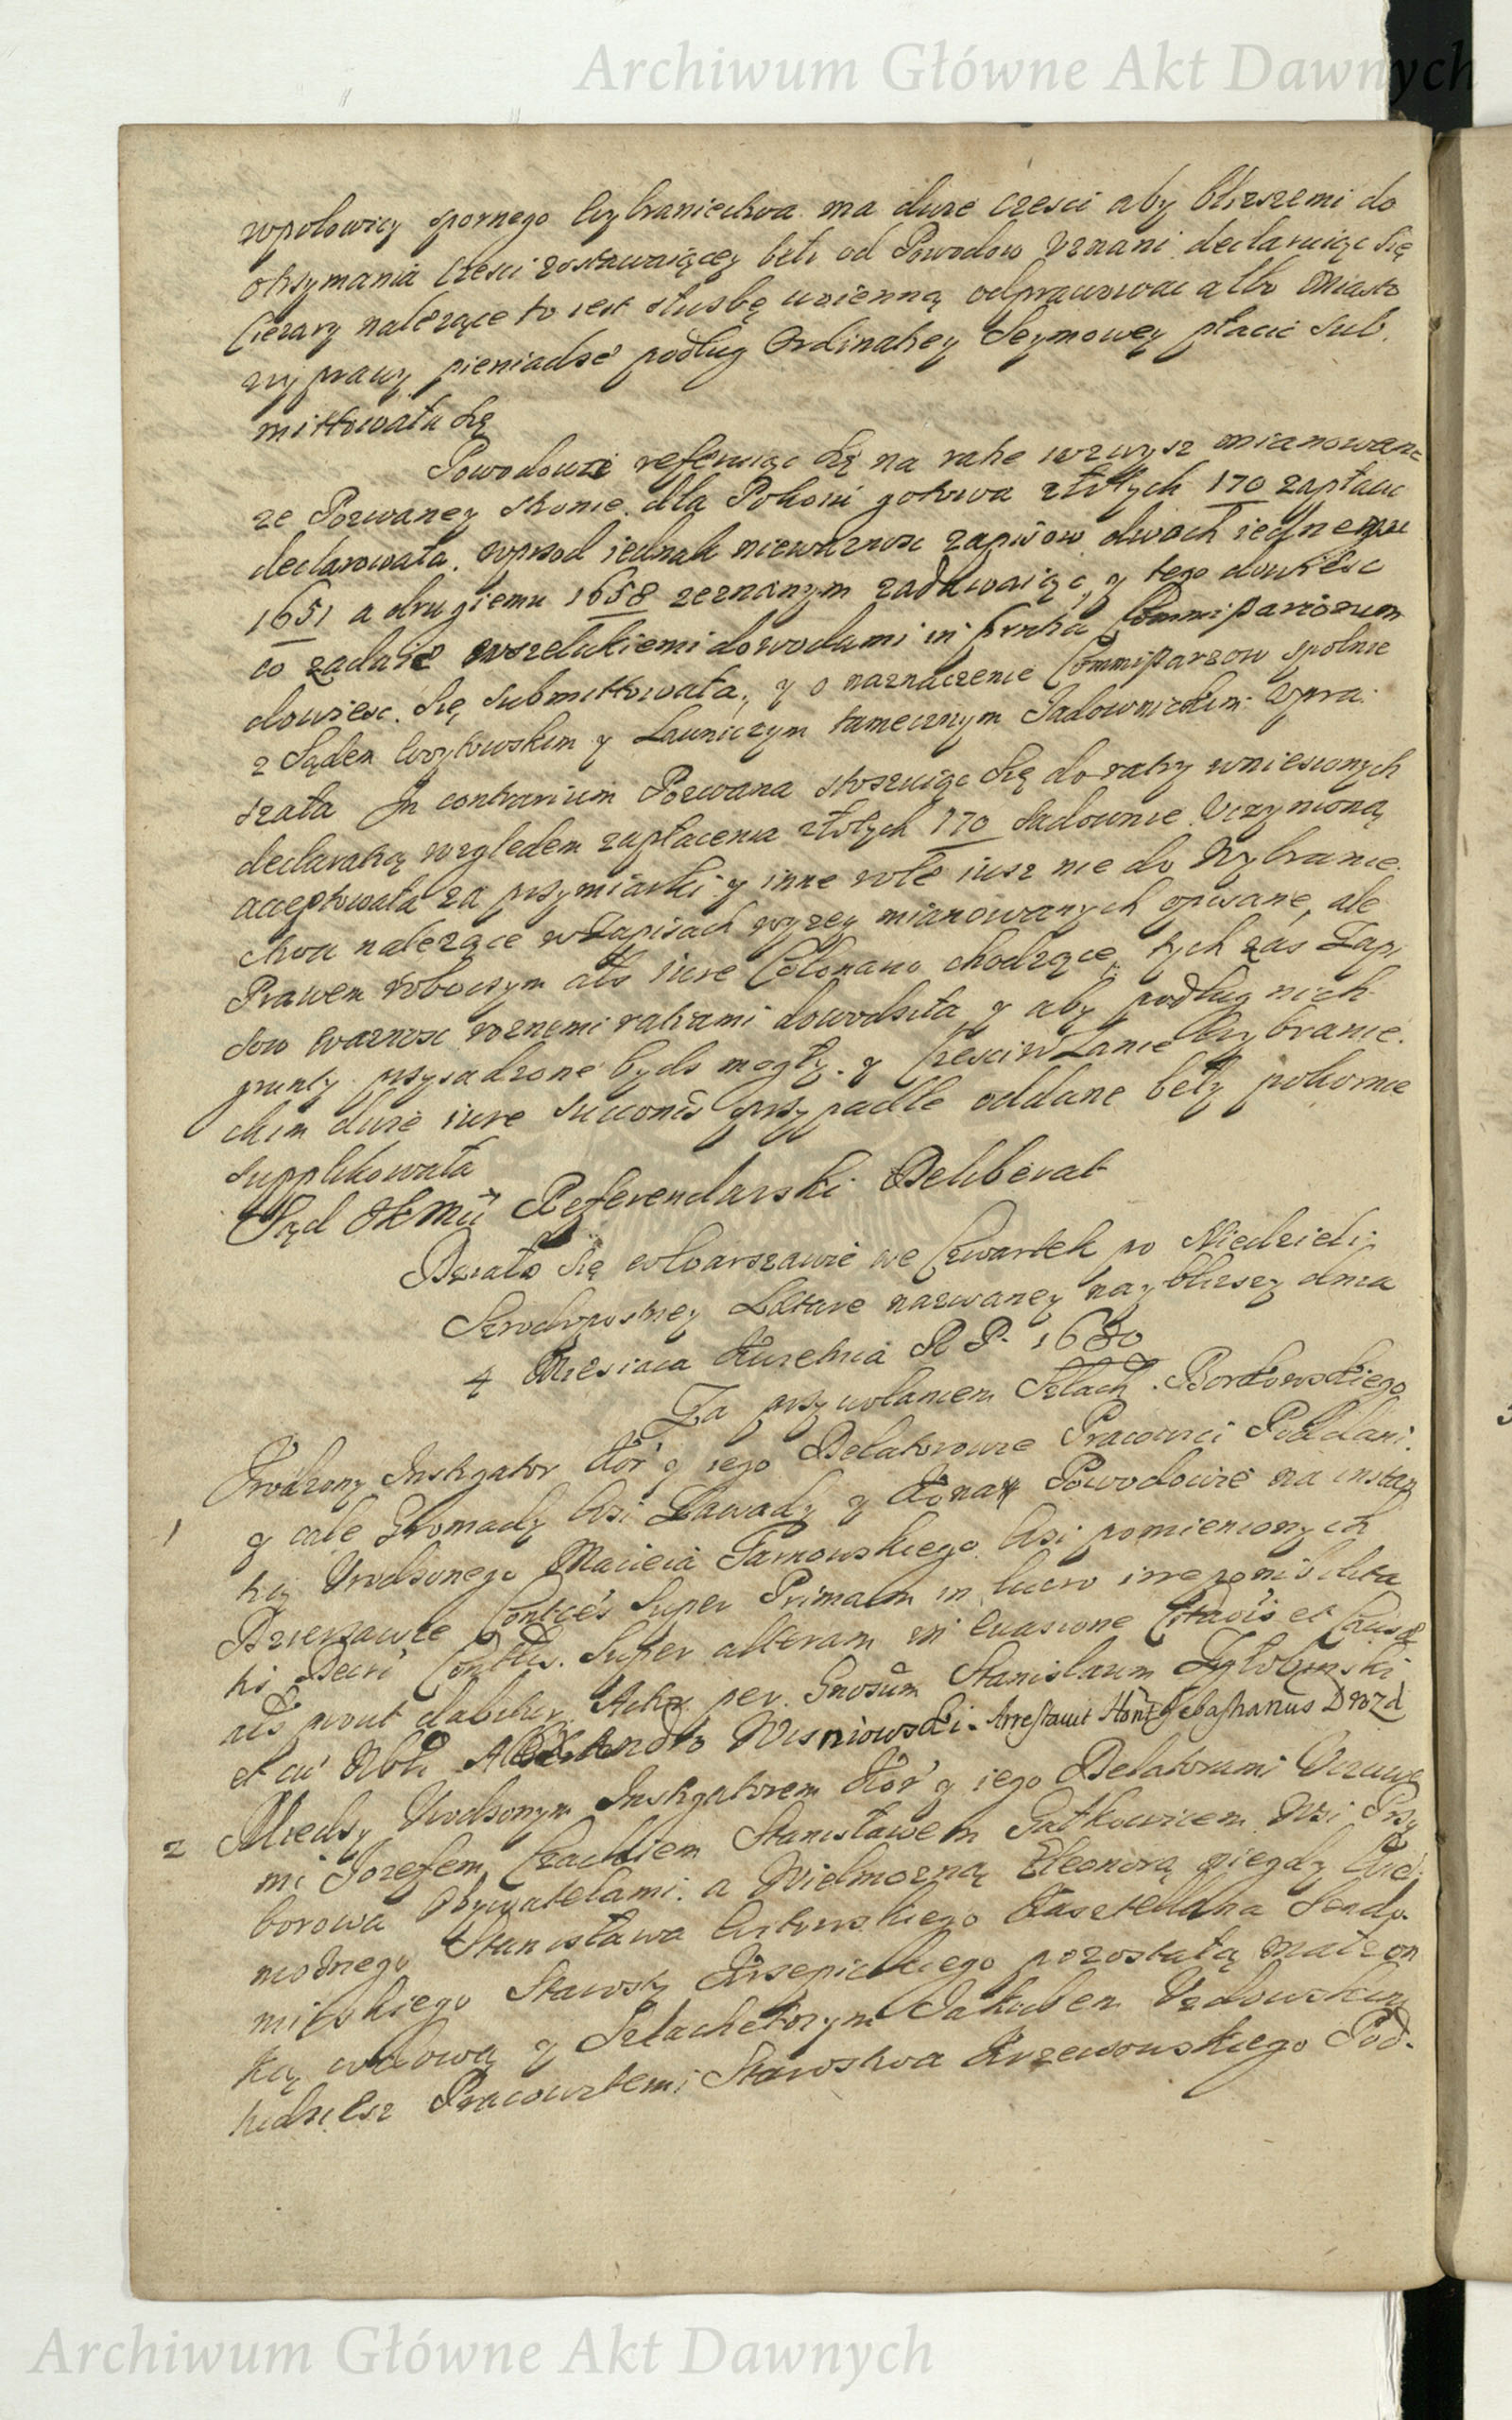 Archiwum Główne Akt Dawnych
wpołowicy spornego Wybraniechwa ma dwie czesci aby blizszemi do
otrzymania czesci zostawaiącey beli od Powodow Uznani declaruiąc się
Ciezary nalezące to iest słuzbę woienną odprawowac albo Miasto
wyprawy pieniadze podług Ordinatiey Seymowey płacic sub.
mittowała się
Powodowie referuiąc się na ratie wzwysz mianowane
ze Pozwaney stronie dla Pokoiu gotowa złotych 170 zapłacic
declarowała. wprzod iednak niewaznosc zapisow dwoch iednemu
1651 a drugiemu 1658 zeznanym zadawaiąc, y tego dowiesc
co zadaie wszelakiemi dowodami in fructu Commissariorum
dowiesc się submittowała, y o naznaczenie Commissarzow spolnie
z Sądem Woytowskim y Ławniczym tamecznym Sadownie Upra.
szała In contrarium Pozwana stosuiąc się do raty wniesionych
declaratią względem zapłacenia złotych 170 sadownie Uczynioną
acceptowała za przymiarki y inne role iusz nie do Wybranie.
chwa nalezące w Zapisach wyzey mianowanych opisane, ale
Prawem robocym als iure Colonario chodzące, tych zas Zapi
sow waznosc roznemi ratiami dowodziła y aby podług nich
grunty przysadzone bydz mogły. y czesci w Łanie Wybranie.
ckim dwie iure succonis przypadłe oddane beły pokornie
supplikowała
Sąd JKMci Referendarski Deliberat
Działo się w Warszawie we Czwartek po Niedzieli
Srodopostney Lætare nazwaney nayblizszey dnia
4 Miesiaca Kwietnia R P. 1680
Za przywołaniem Szlach. Borkowskiego
1 Urodzony Instygator Kor y iego Delatorowie Pracowici Poddani.
y całe Gromady Wsi Zawady y Powodowie na instan
tią Urodzonego Macieia Tarnowskiego Wsi pomienionych
Dzierzawce Super Primam in lucro irreponibilita
tis Decr Super alteram in euasione
prout dabitur. per Gnosum Stanislaum
et cu Nbli Wisniowski. Arrestauit Sebastianus Drozd
2 Miedzy Urodzonym Instygatorem Kor y iego Delatorami Uczciwe
mi Jozefem Stanisławem Wsi Przy
borowa Obywatelami. a Wielmozną Eleonorą niegdy Wiel
moznego Stanisława Kasztellana Sendo.
mirskiego Starosty Krzepickiego pozostałą małzon
ką wdową y Szlachetnym Jakubem
tudziesz Pracowitemi Starostwa Pod.
Archiwum Główne Akt Dawnych